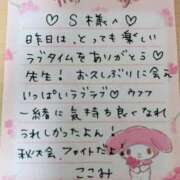 ♡S様へ
昨日は、とっても楽しい
ラブタイムをありがとう♡
先生!お久しぶりに会え
いっぱいラブラブ♡ウフフ
一緒に気持ち良くなれて
うれしかったよん!
秋大会、ファイトだよ
ここみ